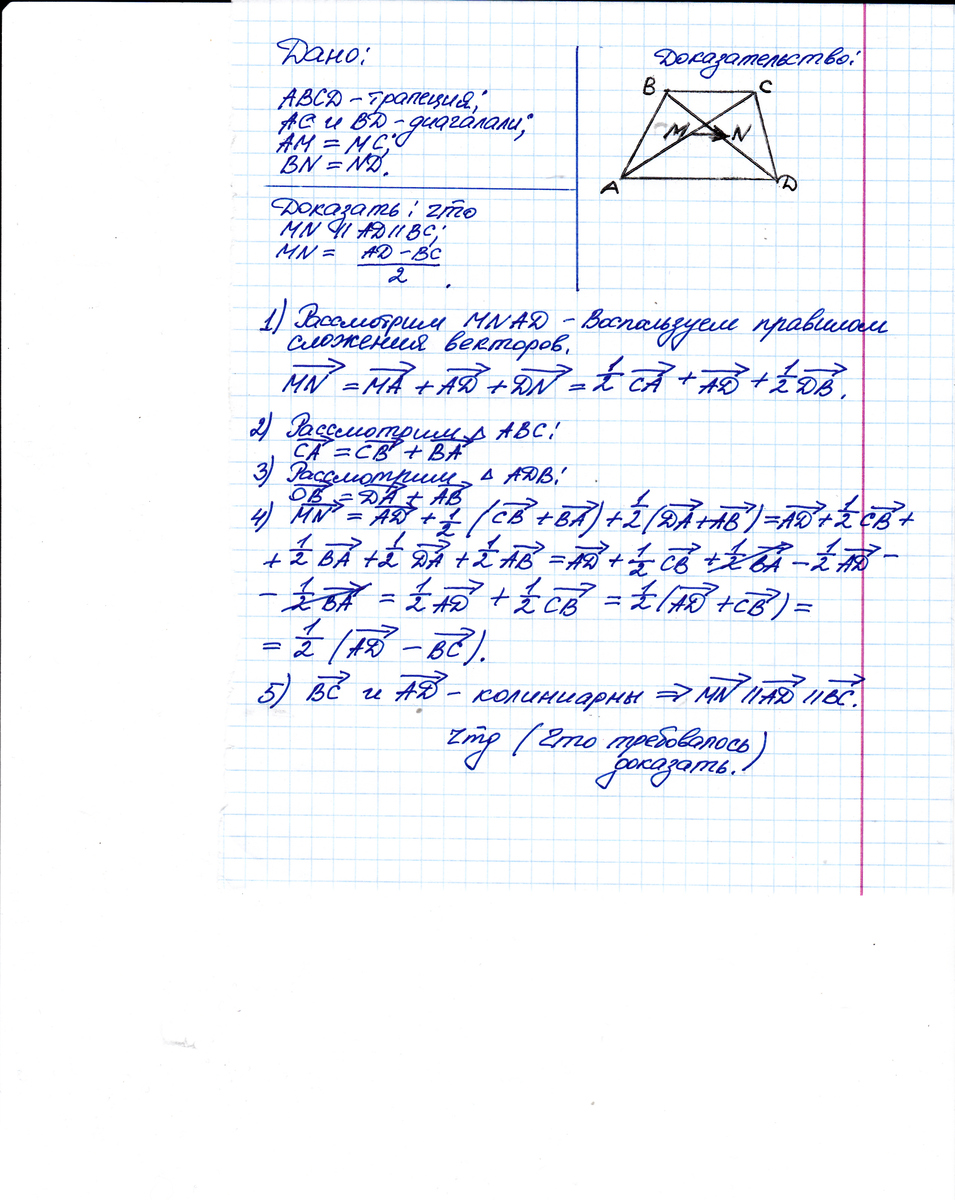 Дано:
ABCD – трапеция;
AC и BD – диагалали;
AM = MC;
BN = ND.
Доказать: что
MN || AD || BC;
MN = AD – BC
2 .
Доказательство:
B C
M N
A D
1) Рассмотрим MNAD – Воспользуем правилом
сложения векторов.
MN = MA + AD + DN = 1/2 CA + AD + 1/2 DB.
2) Рассмотрим △ ABC:
CA = CB + BA
3) Рассмотрим △ ADB:
DB = DA + AB
4) MN = AD + 1/2 (CB + BA) + 1/2 (DA + AB) = AD + 1/2 CB +
+ 1/2 BA + 1/2 DA + 1/2 AB = AD + 1/2 CB + 1/2 BA – 1/2 AD –
– 1/2 BA = 1/2 AD + 1/2 CB = 1/2 (AD + CB) =
= 1/2 (AD – BC).
5) BC и AD – колиниарны ⇒ MN || AD || BC.
чтд (что требовалось)
доказать.)